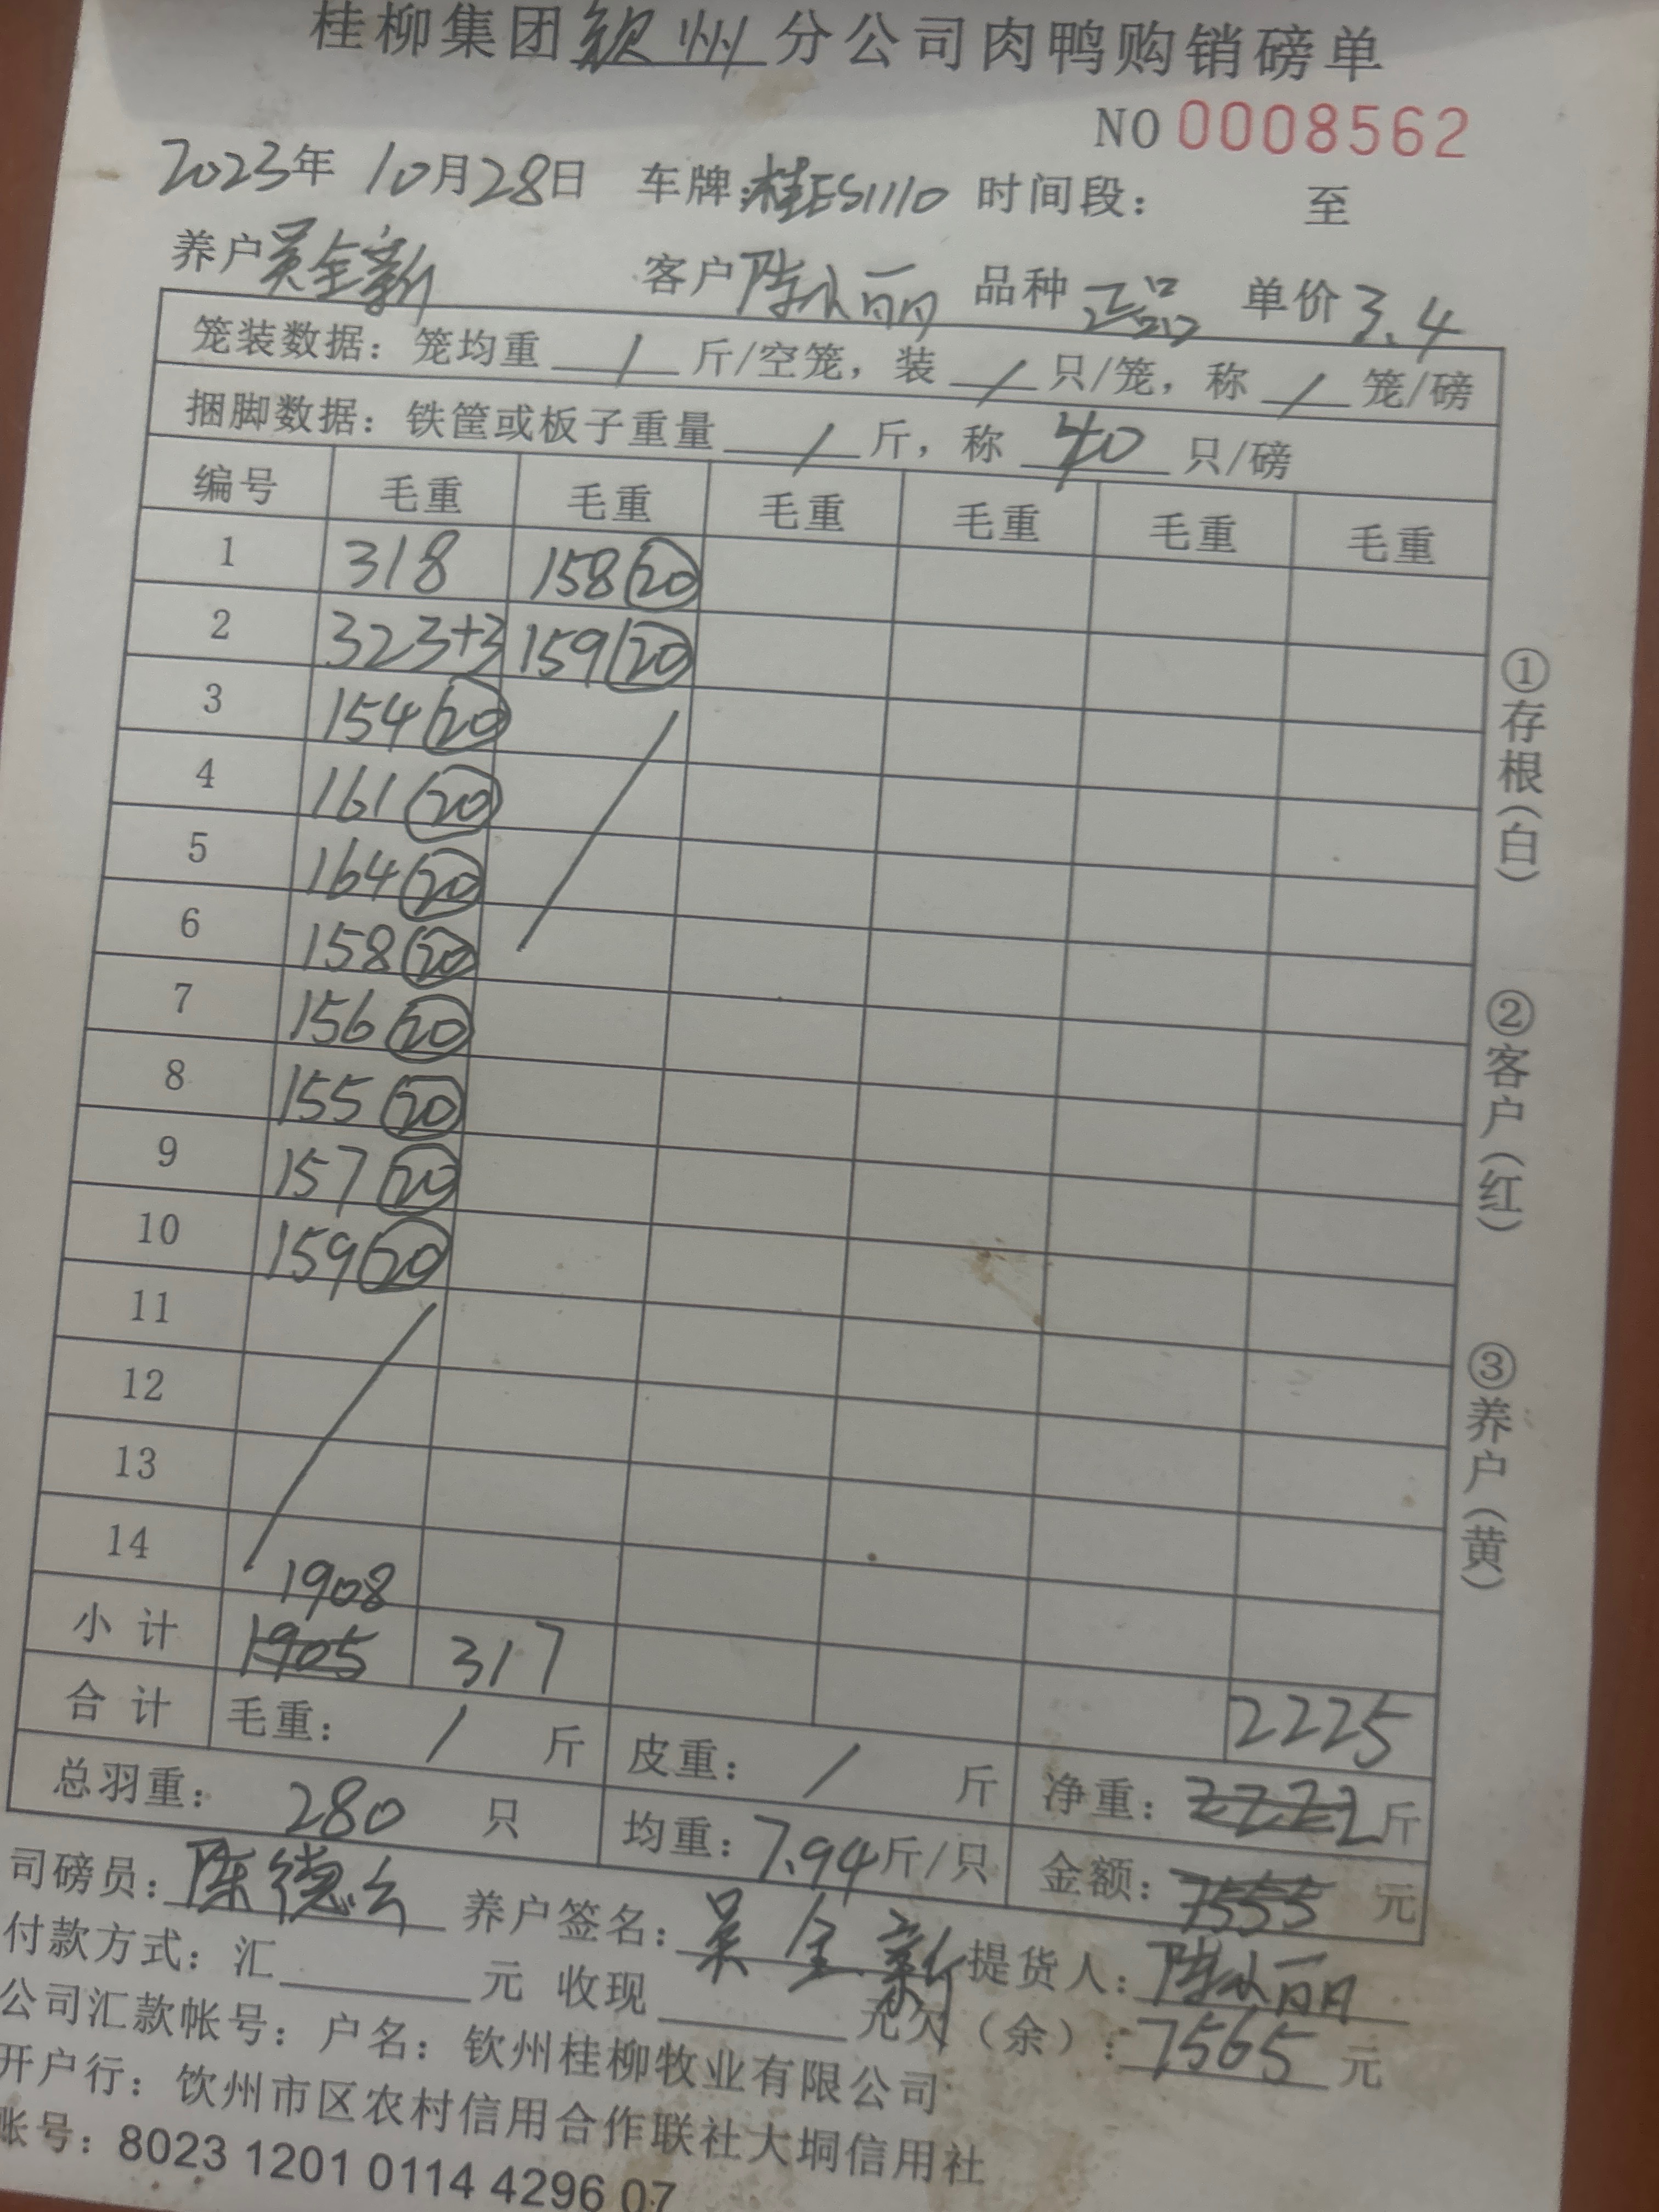 桂柳集团钦州分公司肉鸭购销磅单
NO 0008562
2023年 10月28日 车牌:桂ES1110 时间段: 至
养户 吴全新 客户 陈水丽 品种 正品 单价 3.4
笼装数据：笼均重 / 斤/空笼，装 / 只/笼，称 / 笼/磅
捆脚数据：铁筐或板子重量 / 斤，称 40 只/磅
编号 毛重 毛重 毛重 毛重 毛重 毛重
1 318 158 20
2 323+3 159 20
3 154 20
4 161 20
5 164 20
6 158 20
7 156 20
8 155 20
9 157 20
10 159 20
11
12
13
14
1908
小计 1905 317
2225
合计 毛重： / 斤 皮重： / 斤 净重：2222斤
总羽重： 280 只 均重：7.94斤/只 金额：7555 元
司磅员：陈德云 养户签名：吴全新 提货人：陈水丽
付款方式：汇 元 收现 元欠（余）：7565 元
公司汇款帐号：户名：钦州桂柳牧业有限公司
开户行：钦州市区农村信用合作联社大垌信用社
账号：8023 1201 0114 4296 07
①存根(白)
②客户(红)
③养户(黄)